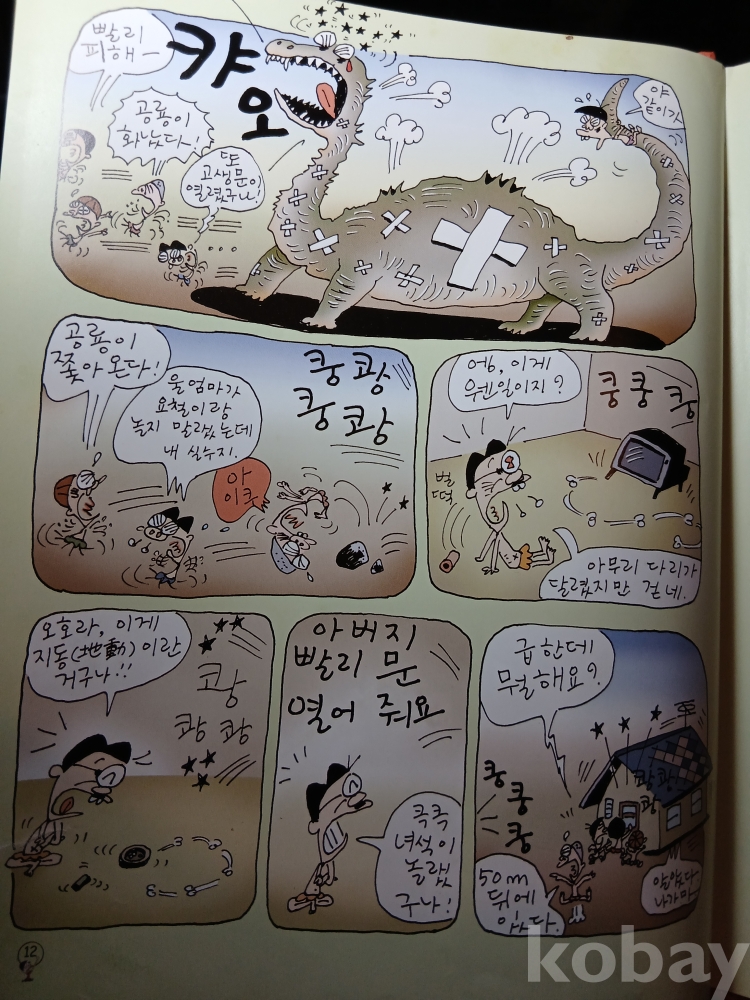 빨리
피해 —
캬
오
공룡이
화났다!
또
고생문이
열렸구나!
야
같이가
공룡이
쫓아 온다!
울엄마가
요철이랑
놀지 말랬는데
내 실수지.
아
이쿠
쿵쾅
쿵쾅
어, 이게
우짼일이지?
쿵쿵쿵
벌
떡
아무리 다리가
달렸지만 걷네.
오호라, 이게
지동(地動)이란
거구나!!
쾅
쾅쾅
아버지
빨리 문
열어 줘요
큭큭
녀석이
놀랬
구나!
급한데
뭘해요?
쿵
쿵
쿵
쾅쾅
쾅
50m
뒤에
있다.
알았다
나가마
12
kobay